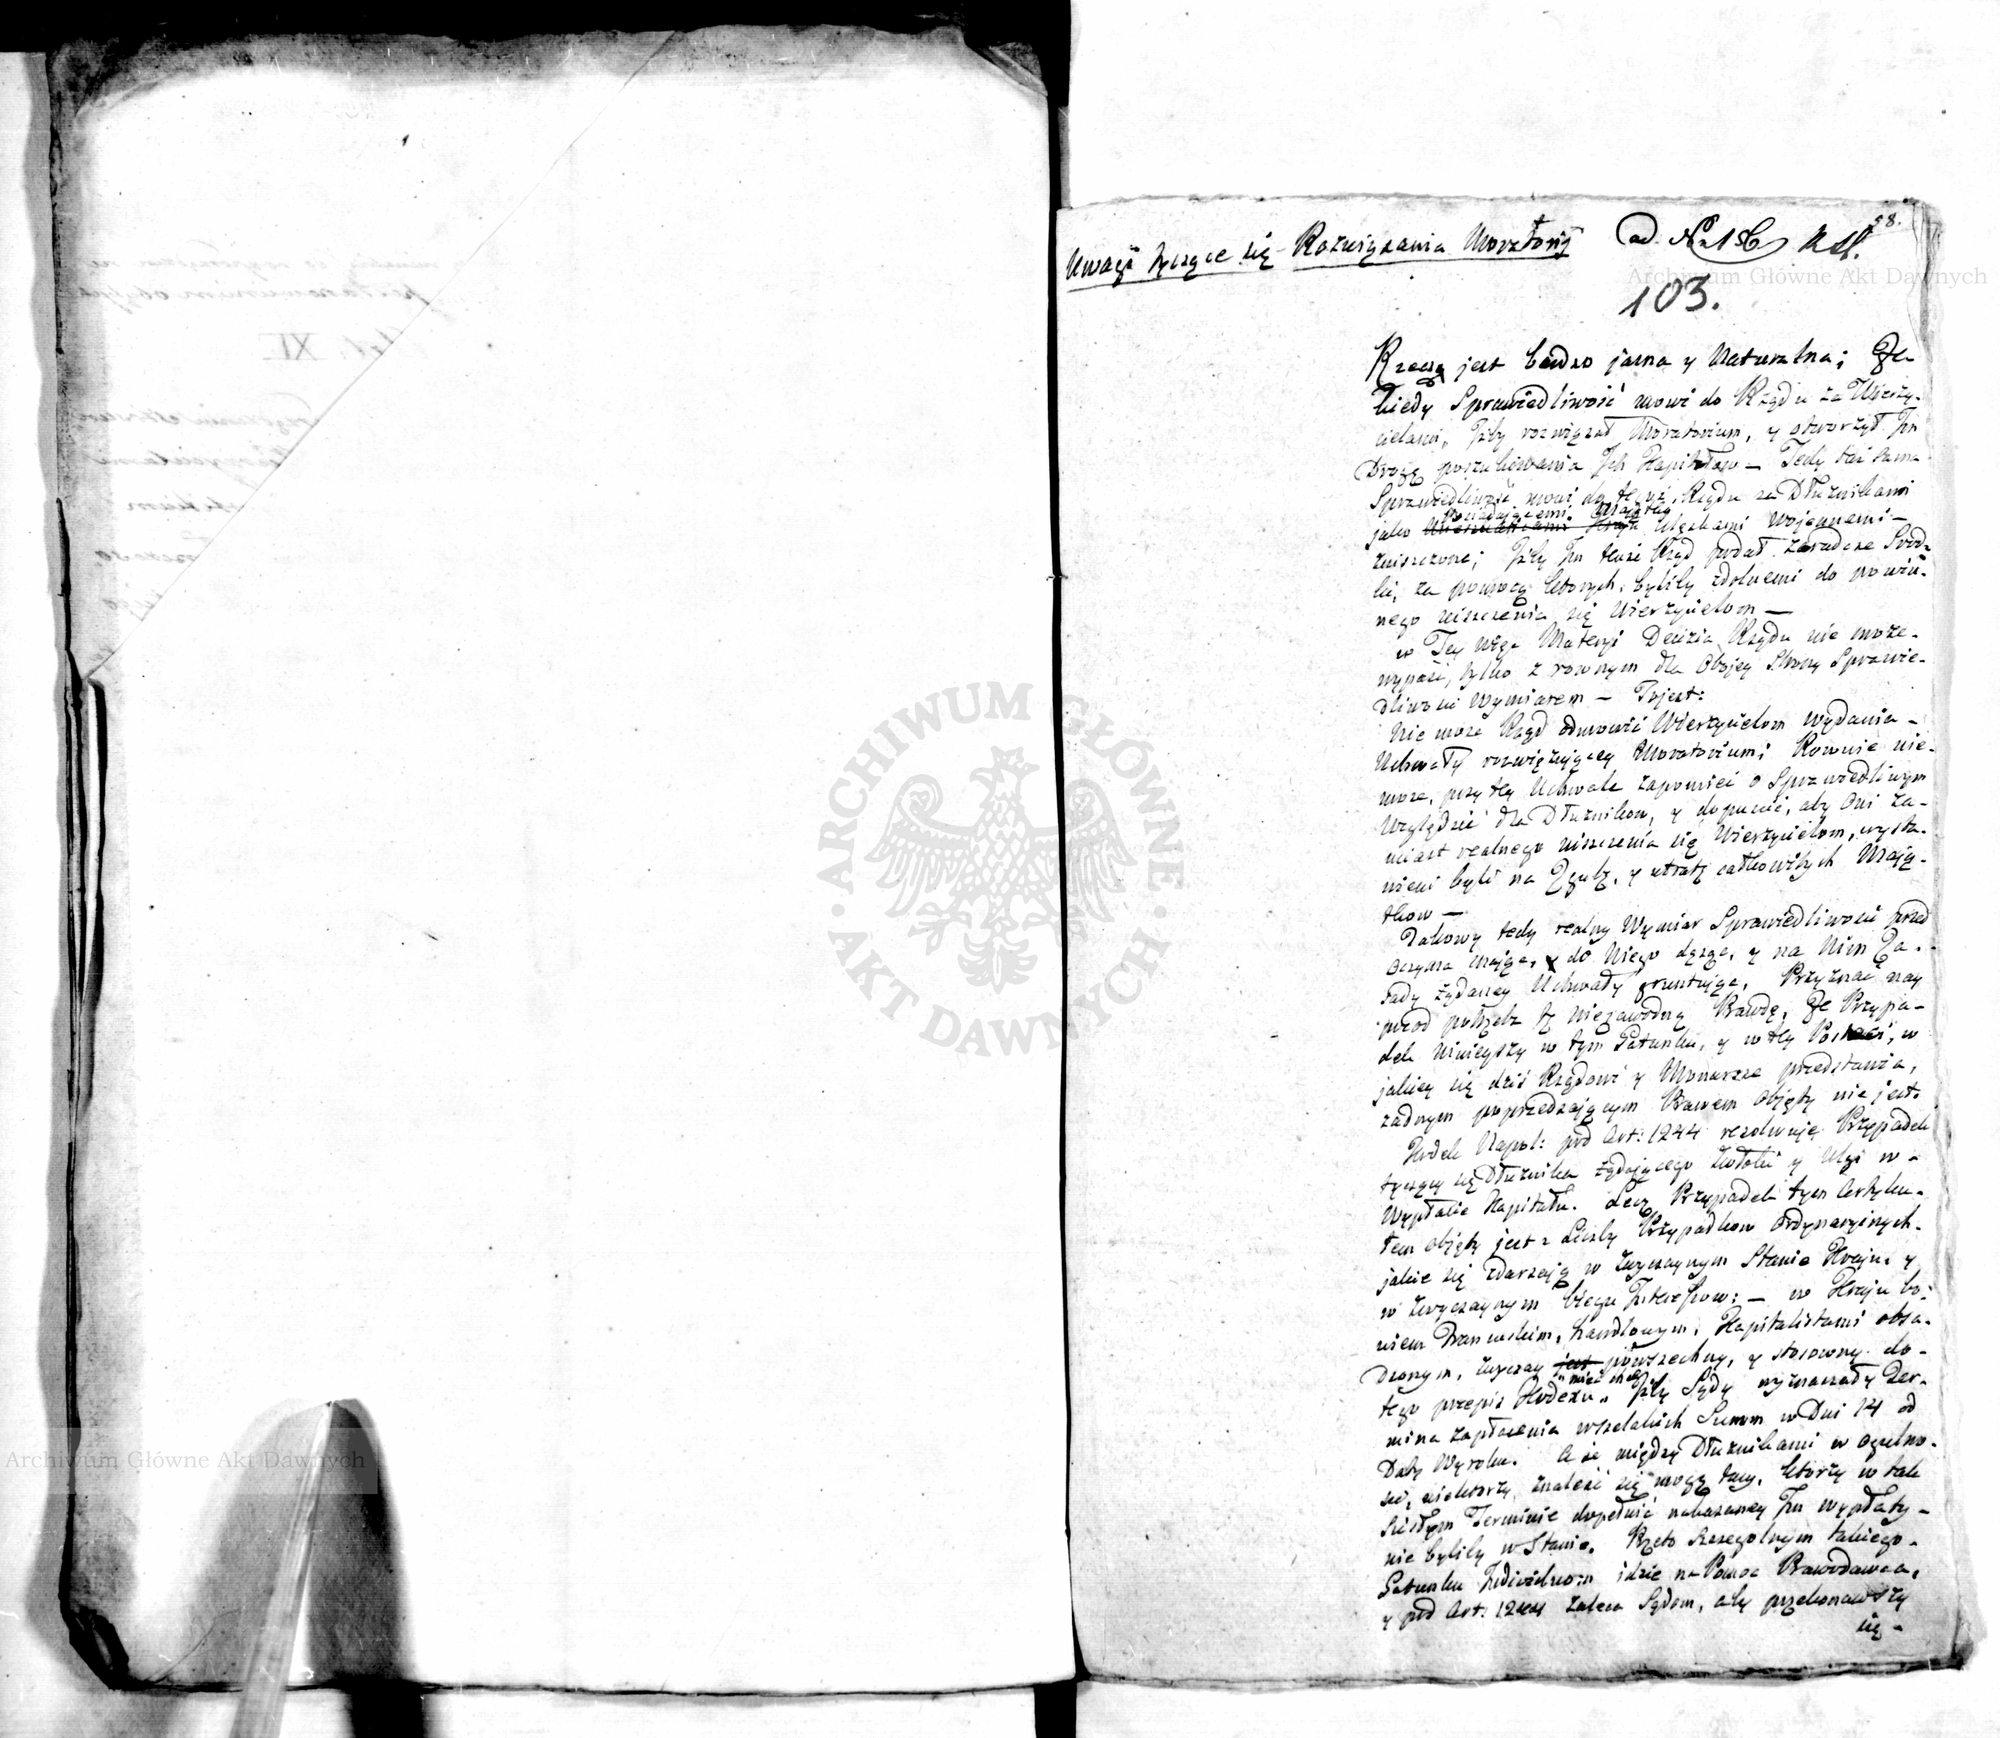 Uwagi tyczące się Rozwiązania Moratorij
ad N 1
58.
103.
Rzeczą jest bardzo jasna y Naturalna; Że
kiedy Sprawiedliwość mowi do Rządu za Wierzy-
cielami, Jżby rozwiązał Moratorium, y otworzył Jm
Drogę poszukiwania Jch Kapitałow — Tedy taż sama
Sprawiedliwość mowi do tegoż Rządu za Dłużnikami
posiadaiącemi Maiątki
jako klęskami woiennemi —
zniszczone; Jżby Jm tenże Rząd podał zaradcze Srod-
ki, za pomocą ktorych, byliby zdolnemi do powin-
nego uiszczenia się Wierzycielom —
w Tey więc Materyi Decizia Rządu nie może-
wypaść, tylko z rownym dla Obojey Strony Sprawie-
dliwości Wymiarem — Tojest:
Nie może Rząd odmowić Wierzycielom wydania -
Uchwały rozwięzuiącey Moratorium; Rownie nie-
może, przy tey Uchwale zapomnieć o Sprawiedliwym
Względzie dla Dłużnikow, y dopuścić, aby Oni za-
miast realnego uiszczenia się Wierzycielom, wysta-
wieni byli na Zgubę, y utratę całkowitych Mają-
tkow —
Takowy tedy realny Wymiar Sprawiedliwości przed
oczyma maiąc, do Niego dążąc, y na Nim Za-
sady żądaney Uchwały gruntuiąc, Przyznać nay
przod potrzeba tę niezawodną Prawdę, Że Przypa-
dek Ninieyszy w tym Gatunku, y w tey Postaci, w
jakiey się dziś Rządowi y Monarsze przedstawia,
żadnym poprzedzaiącym Prawem objęty nie jest.
Kodex Napol: pod Art: 1244 rezolwuje Przypadek
tyczący się Dłużnika żądaiącego Zwłoki y Ulgi w -
Wypłacie Kapitału. Lecz Przypadek tym Artyku-
łem objęty jest z Liczby Przypadkow Ordynaryinych-
jakie się zdarzaią w Zwyczaynym Stanie Kraju y
w zwyczaynym biegu Jnteressow: — w Kraju bo-
wiem Francuskim, handlowym, Kapitalistami obsa-
dzonym, zwyczay jest powszechny, y stosowny do-
mieć chce
tego przepis Kodexu, Jżby Sądy wyznaczały Ter-
mina zapłacenia wszelakich Summ w Dni 14 od
Daty Wyroku. A że między Dłużnikami w ogulno-
ści, niektorzy znaleść się mogą tacy, ktorzy w tak
Scisłym Terminie dopełnić nakazaney Jm wypłaty -
nie byliby w Stanie. Przeto Szczegolnym takiego-
Gatunku Jndividuom idzie na Pomoc Prawodawca,
y pod Art: 1244 zaleca Sądom, aby przekonawszy
się -
Archiwum Główne Akt Dawnych
ARCHIWUM GŁÓWNE · AKT DAWNYCH ·
Archiwum Główne Akt Dawnych